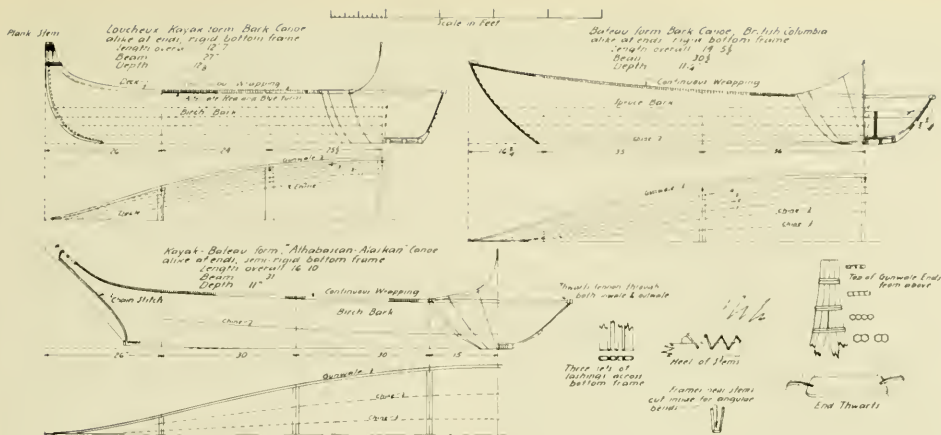 Scale in Feet
Plank Stem
Loucheux Kayak form Bark Canoe
alike at ends, rigid bottom frame
Length overall 12' 7"
Beam 27"
Depth
Deck
Wrapping
Birch Bark
26
24
Gunwale
Chine
Deck
Bateau form Bark Canoe, British Columbia
alike at ends rigid bottom frame
Length overall 14' 5½
Beam 30½
Depth
Continuous Wrapping
Spruce Bark
Chine 2
36
Gunwale
Chine 2
Chine 1
Kayak-Bateau form, "Athabascan-Alaskan" Canoe
alike at ends, semi-rigid bottom frame
Length overall 16 10
Beam 31
Depth 11"
Chain Stitch
Continuous Wrapping
Birch Bark
Chine-2
26"
30
30
15
Gunwale
Thwarts tenon through
both inwale & outwale
Three sets of
lashings across
bottom frame
Heel of Stems
Frames near stems
cut inside for angular
bends
Top of Gunwale Ends
from above
End Thwarts